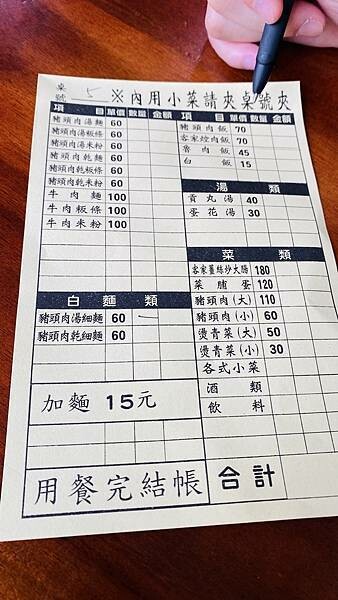 桌號 5 ※內用小菜請夾桌號夾
項目 單價 數量 金額
豬頭肉湯麵 60
豬頭肉湯粄條 60
豬頭肉湯米粉 60
豬頭肉乾麵 60
豬頭肉乾粄條 60
豬頭肉乾米粉 60
牛肉麵 100
牛肉粄條 100
牛肉米粉 100
白麵類
豬頭肉湯細麵 60 一
豬頭肉乾細麵 60
加麵 15元
用餐完結帳
項目 單價 數量 金額
豬頭肉飯 70
客家焢肉飯 70
魯肉飯 45
白飯 15
湯類
貢丸湯 40
蛋花湯 30
菜類
客家薑絲炒大腸 180
菜脯蛋 120
豬頭肉(大) 110
豬頭肉(小) 60
燙青菜(大) 50
燙青菜(小) 30
各式小菜
酒類
飲料
合計